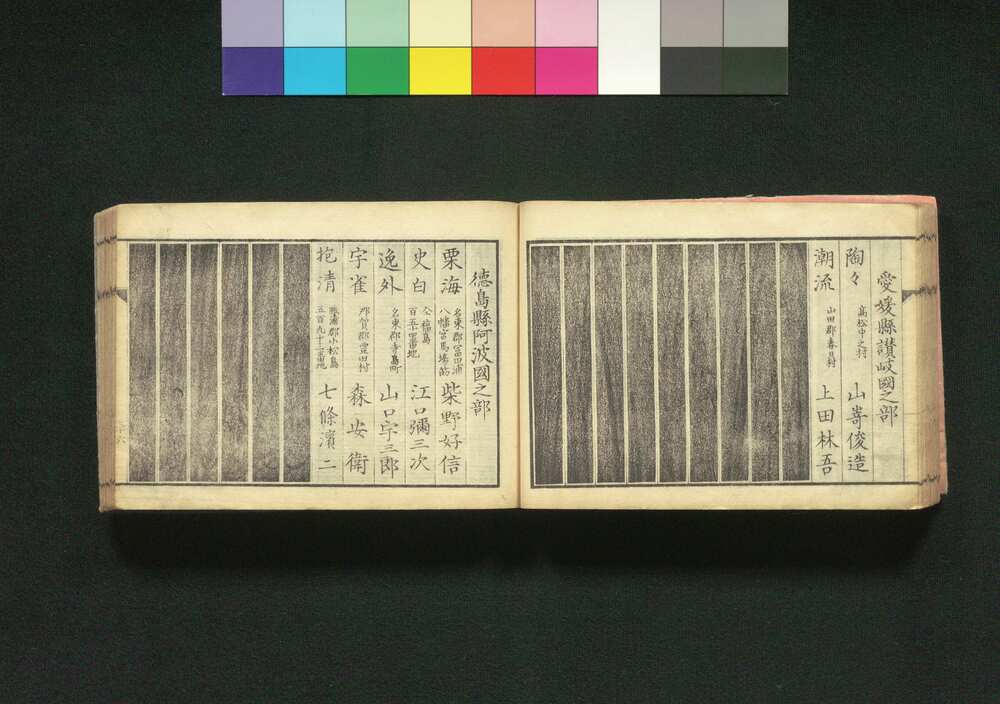 愛媛縣讃岐國之部
陶々 高松中之村 山嵜俊造
潮流 山田郡春日村 上田林吾
德島縣阿波國之部
栗海 名東郡富田浦八幡宮馬場筋 柴野好信
史白 仝福島百五十四番地 江口彌三次
逸外 名東郡寺島町 山口宇三郎
宇雀 那賀郡豊田村 森安衛
抱清 勝浦郡小松島五百九十二番地 七條濱二